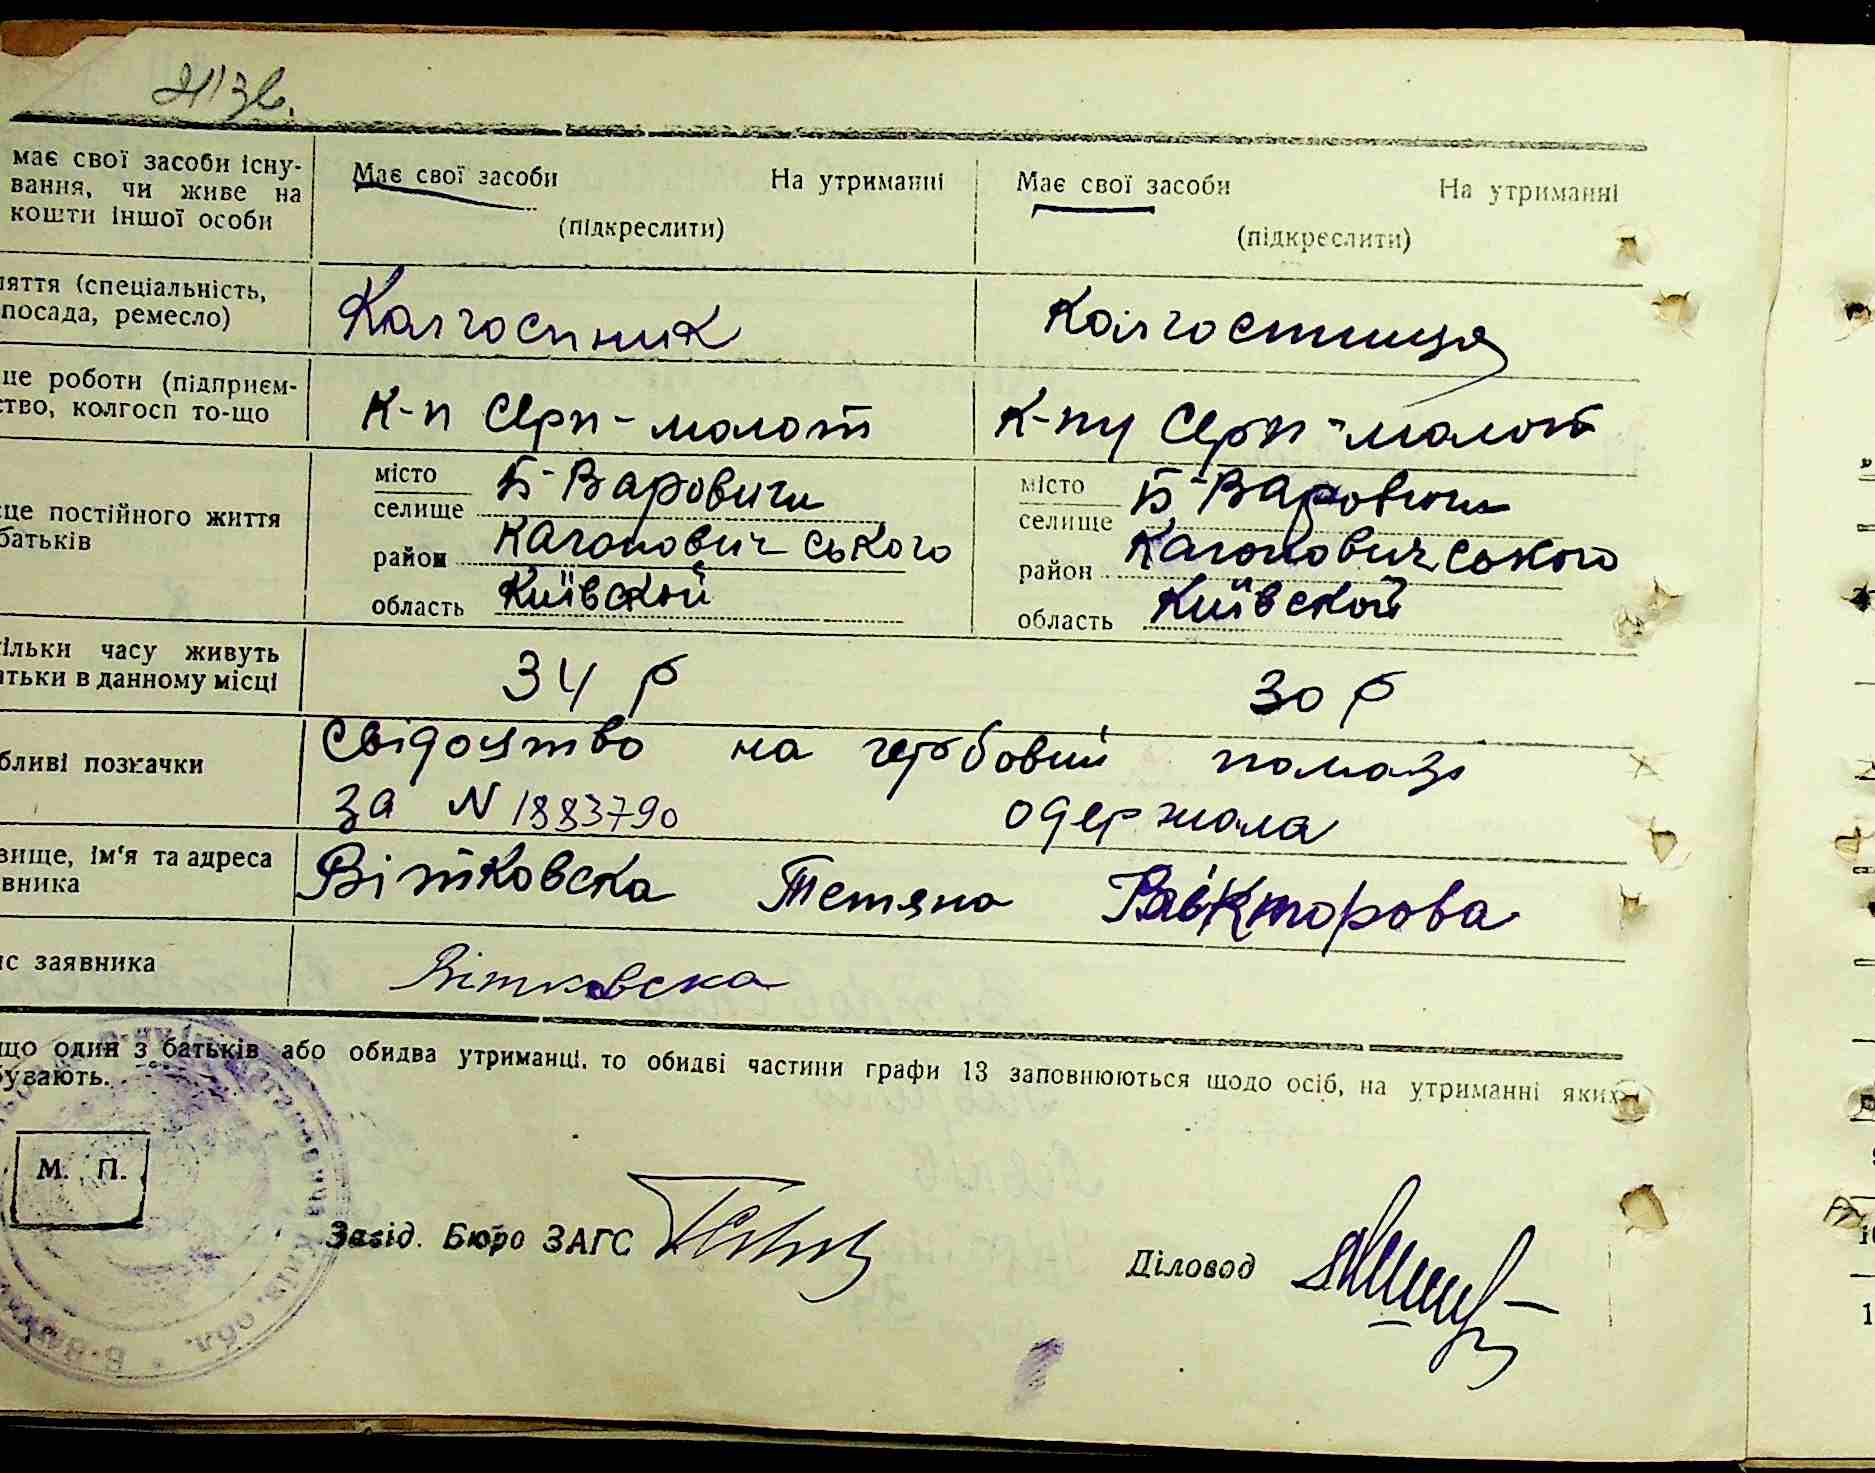 має свої засоби існу-
вання, чи живе на
кошти іншої особи
Має свої засоби На утриманні
(підкреслити)
Має свої засоби На утриманні
(підкреслити)
няття (спеціальність,
посада, ремесло)
Колгоспник
Колгоспниця
це роботи (підприєм-
ство, колгосп то-що
К-п Серп-молот
К-пу Серп-молот
сце постійного життя
батьків
місто
селище Б-Варовичи
район Кагановичського
область Київской
місто
селище Б-Варовичи
район Кагановичського
область Київской
ільки часу живуть
атьки в данному місці
34 р
30 р
бливі позначки
Свідоцтво на гербовий помазі
за N 1883790 одержала
звище, ім'я та адреса
явника
Вітковска Тетяна Вікторова
ис заявника
Вітковска
що один з батьків або обидва утриманці, то обидві частини графи 13 заповнюються щодо осіб, на утриманні яких
бувають.
М. П.
Завід. Бюро ЗАГС
Діловод